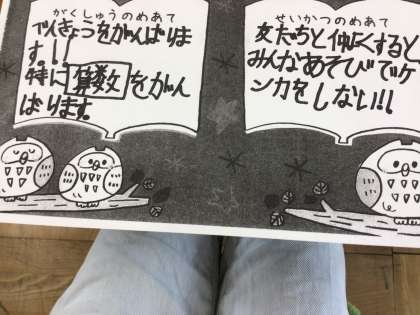 がくしゅうのめあて
べんきょうをがんばりま
す!!
特に算数をがん
ばります.
せいかつのめあて
友だちと仲良くすると
みんなあそびでケ
ンカをしない!!